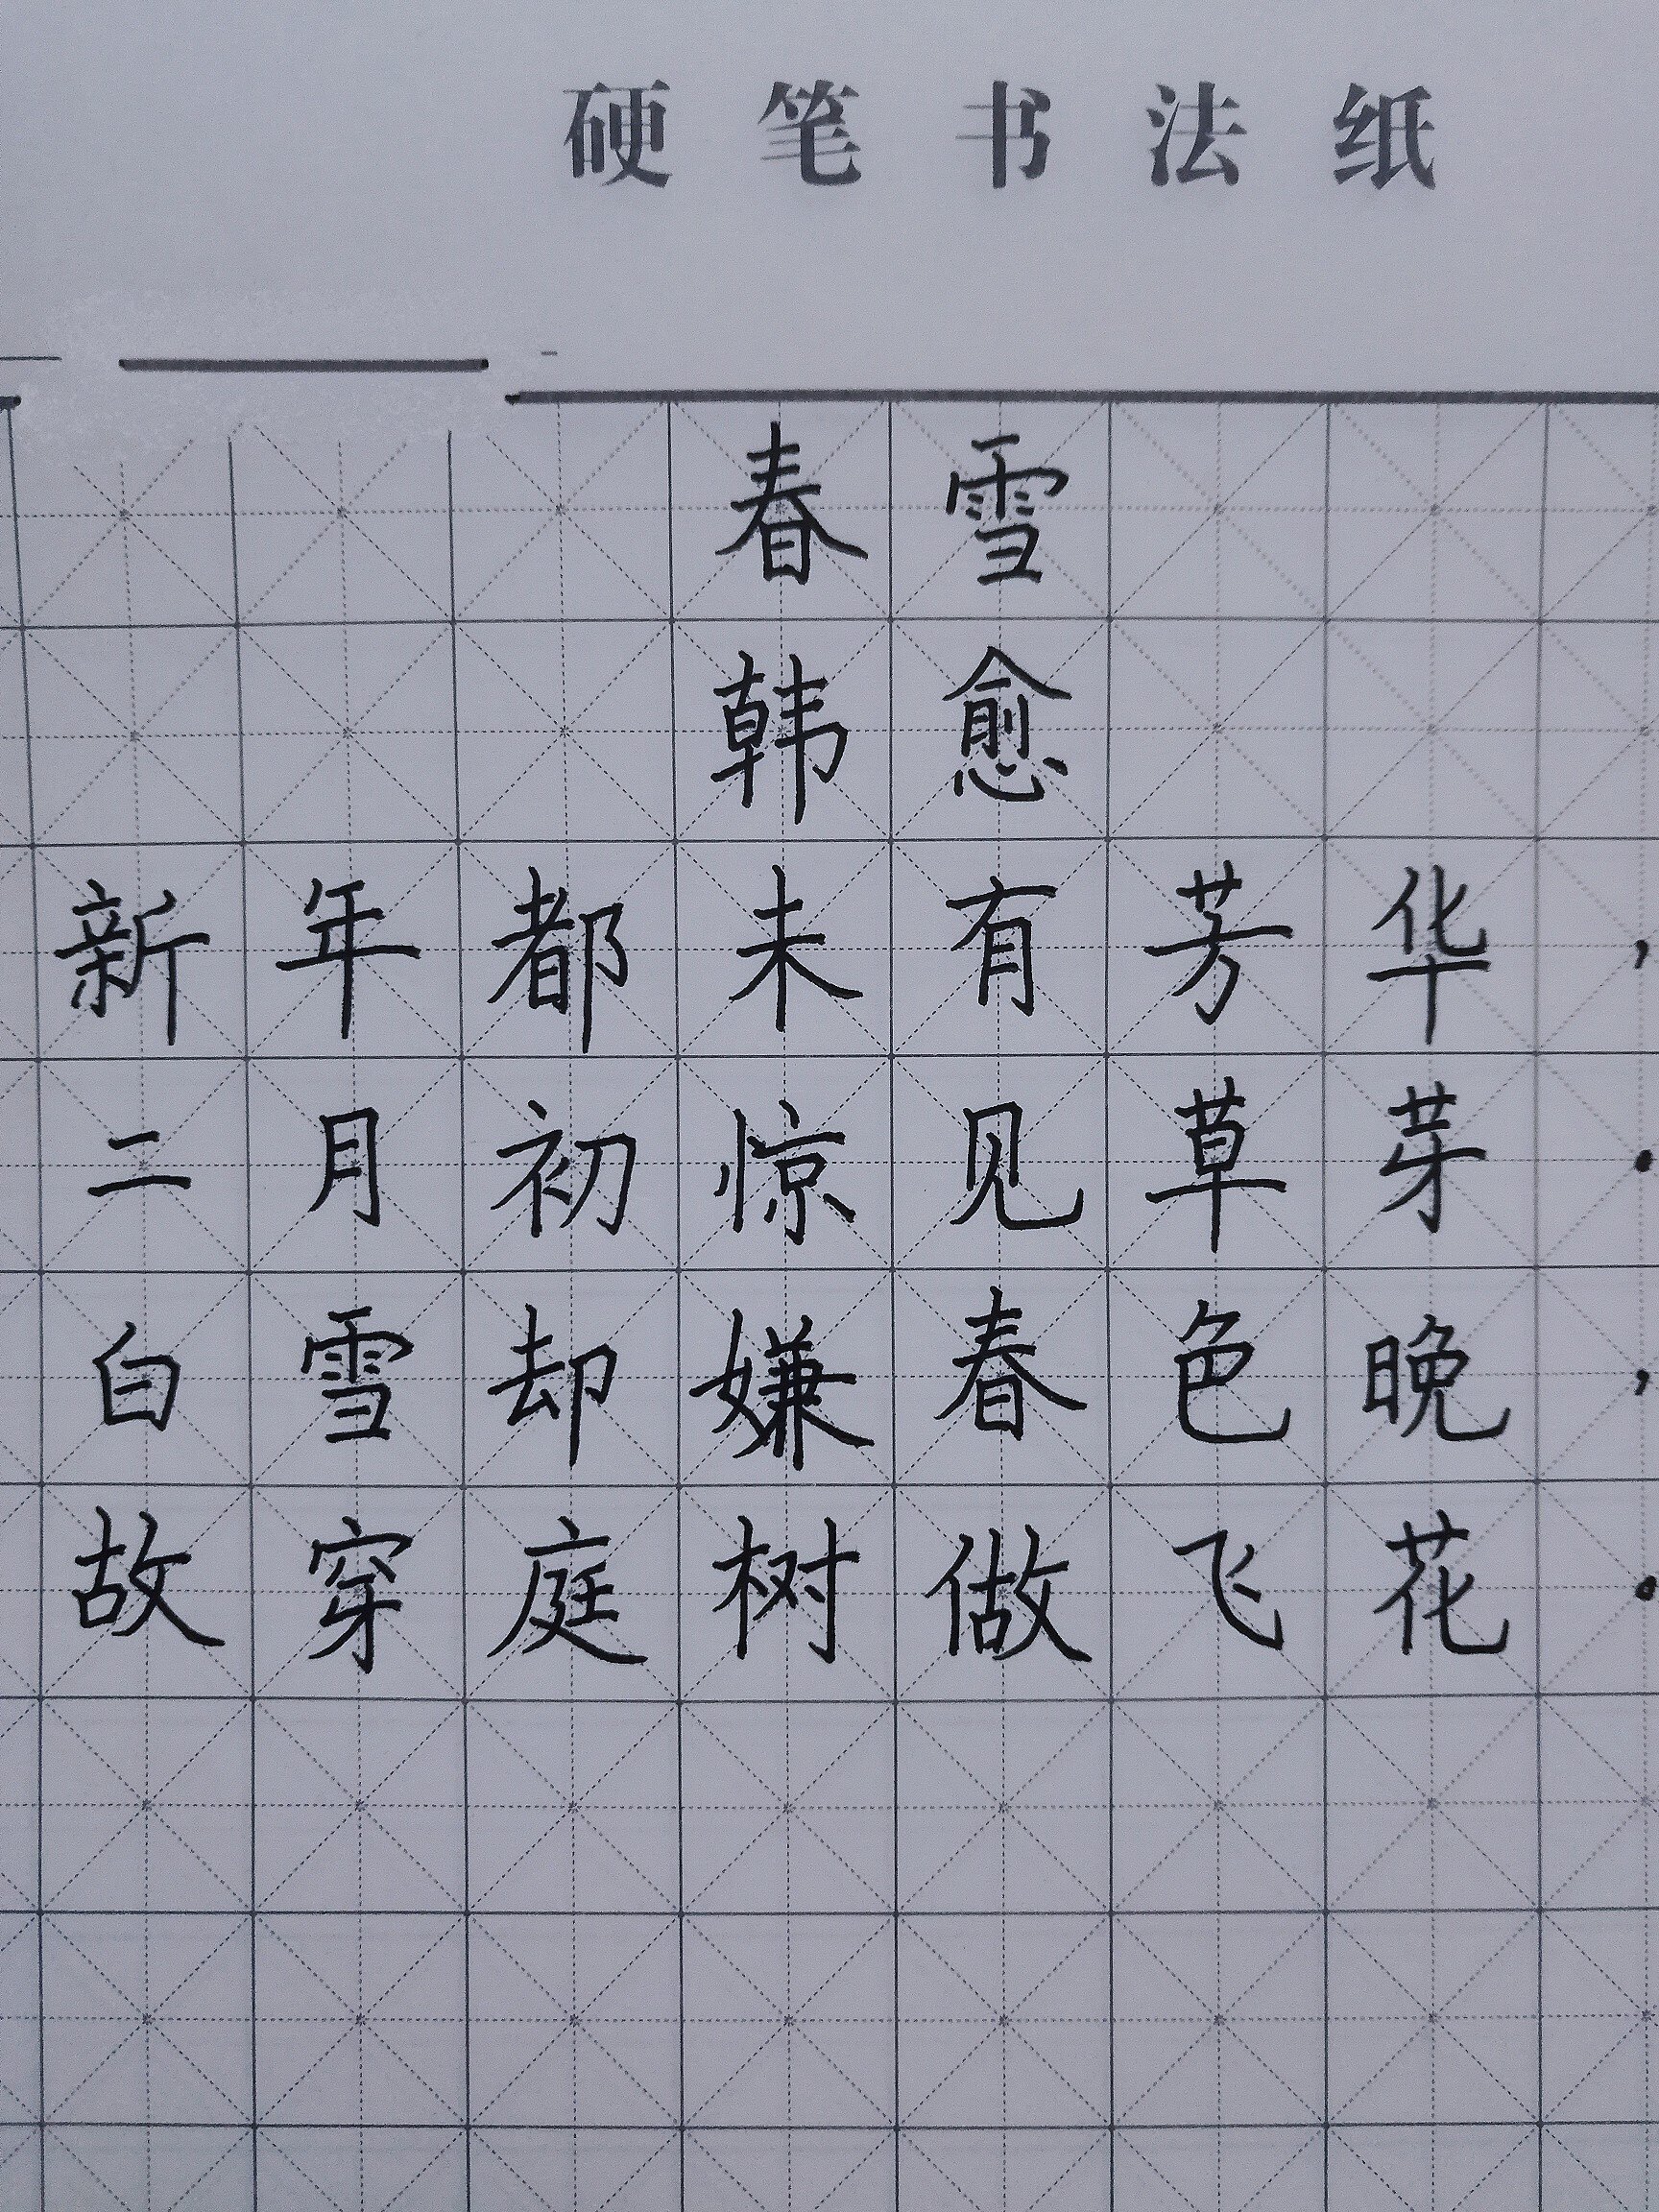 硬笔书法纸
春雪
韩愈
新年都未有芳华，
二月初惊见草芽。
白雪却嫌春色晚，
故穿庭树做飞花。